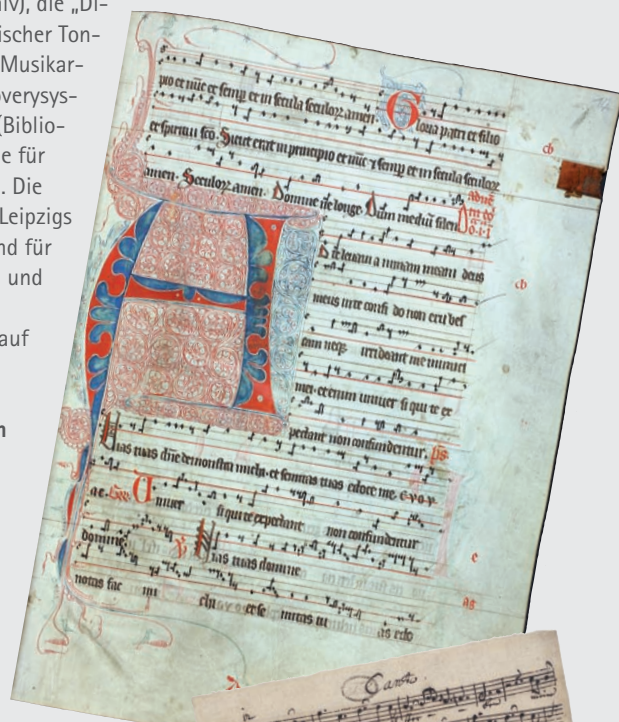 iv), die „Di-
ischer Ton-
Musikar-
overysys-
(Biblio-
e für
. Die
Leipzigs
nd für
und
auf
n
pio et nūc et semp et in secula seculoꝝ amen. Gloria patri et filio
et spiritui sc̄o. Sicut erat in principio et nūc ⁊ semp et in secula seculoꝝ
amen. Seculoꝝ amen. Domine ne longe. Dum mediū silen
cb
A
D te levavi animam meam deus
cb
meus in te confi do non erubes
cam neqꝫ irrideant me inimici
mei. et enim univer si qui te ex
pectant non confundentur. ps.
Vias tuas dn̄e demonstra michi. et semitas tuas edoce me. e v o v
a e. Univer si qui te expectant non confundentur
c
domine. V Vias tuas domine
ag
notas fac mi chi et se mitas tu as edo